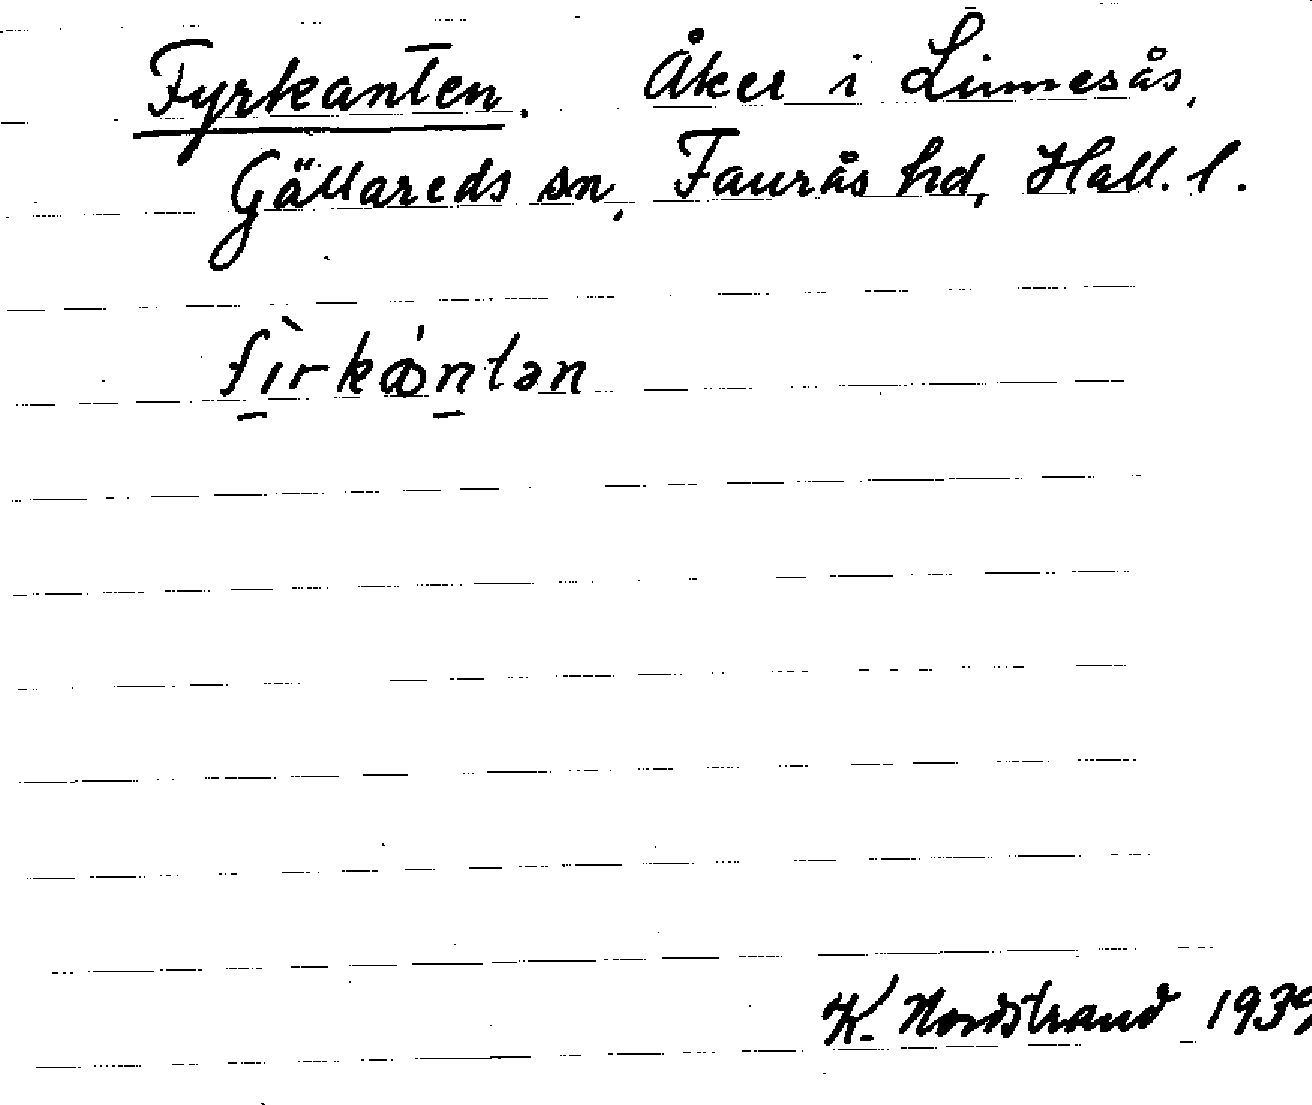 Fyrkanten. Åker i Linnesås,
Gällareds sn, Faurås hd, Hall. l.
fìrkántən
K. Nordstrand 1939